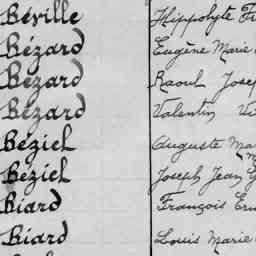 Béville Hippolyte
Bézard Eugène Marie
Bézard Raoul Josep
Bézard Valentin Vi
Béziel Auguste Ma
Béziel Joseph Jean
Biard François Ern
Biard Louis Marie